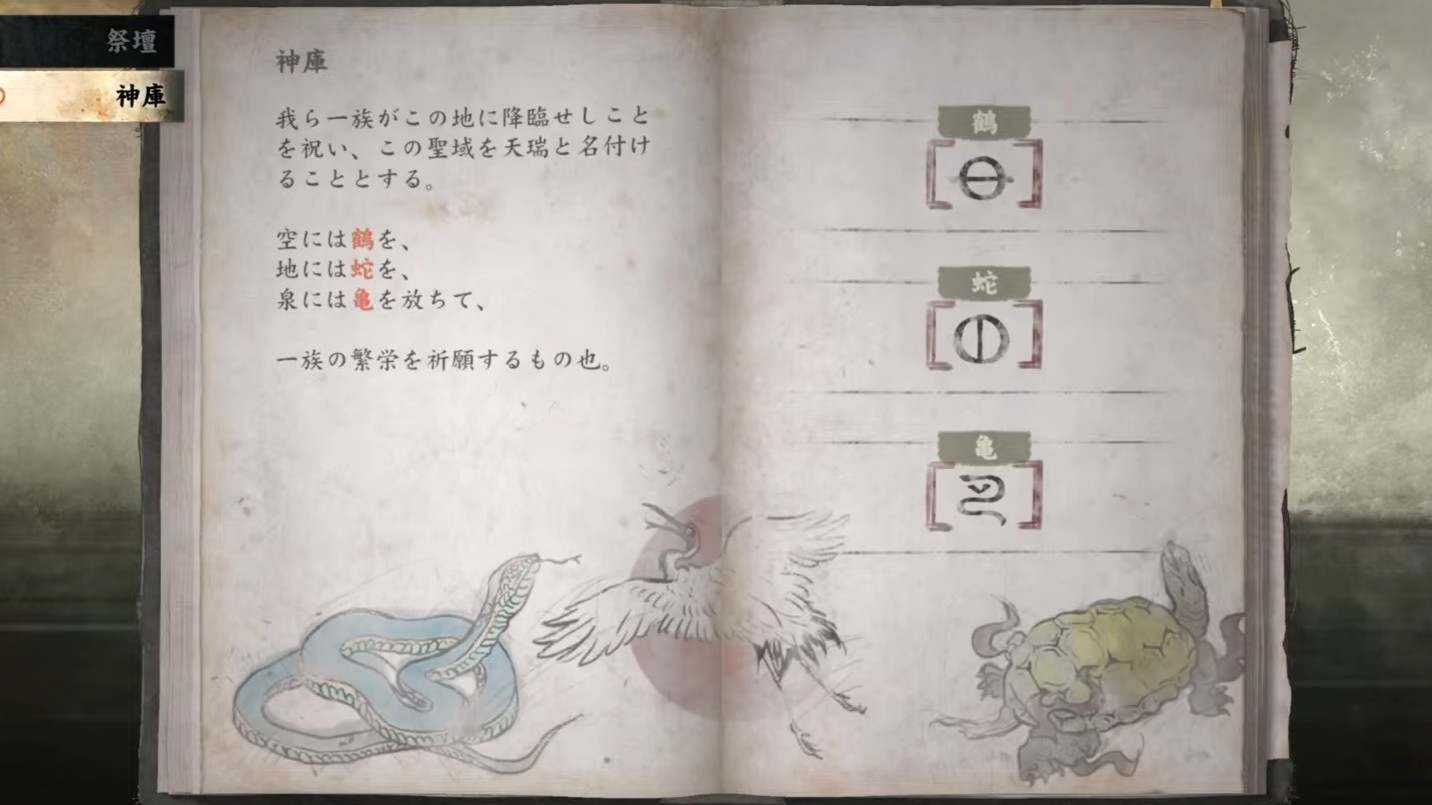 祭壇
神庫
神庫
我ら一族がこの地に降臨せしこと
を祝い、この聖域を天瑞と名付け
ることとする。
空には鶴を、
地には蛇を、
泉には亀を放ちて、
一族の繁栄を祈願するもの也。
鶴
蛇
亀